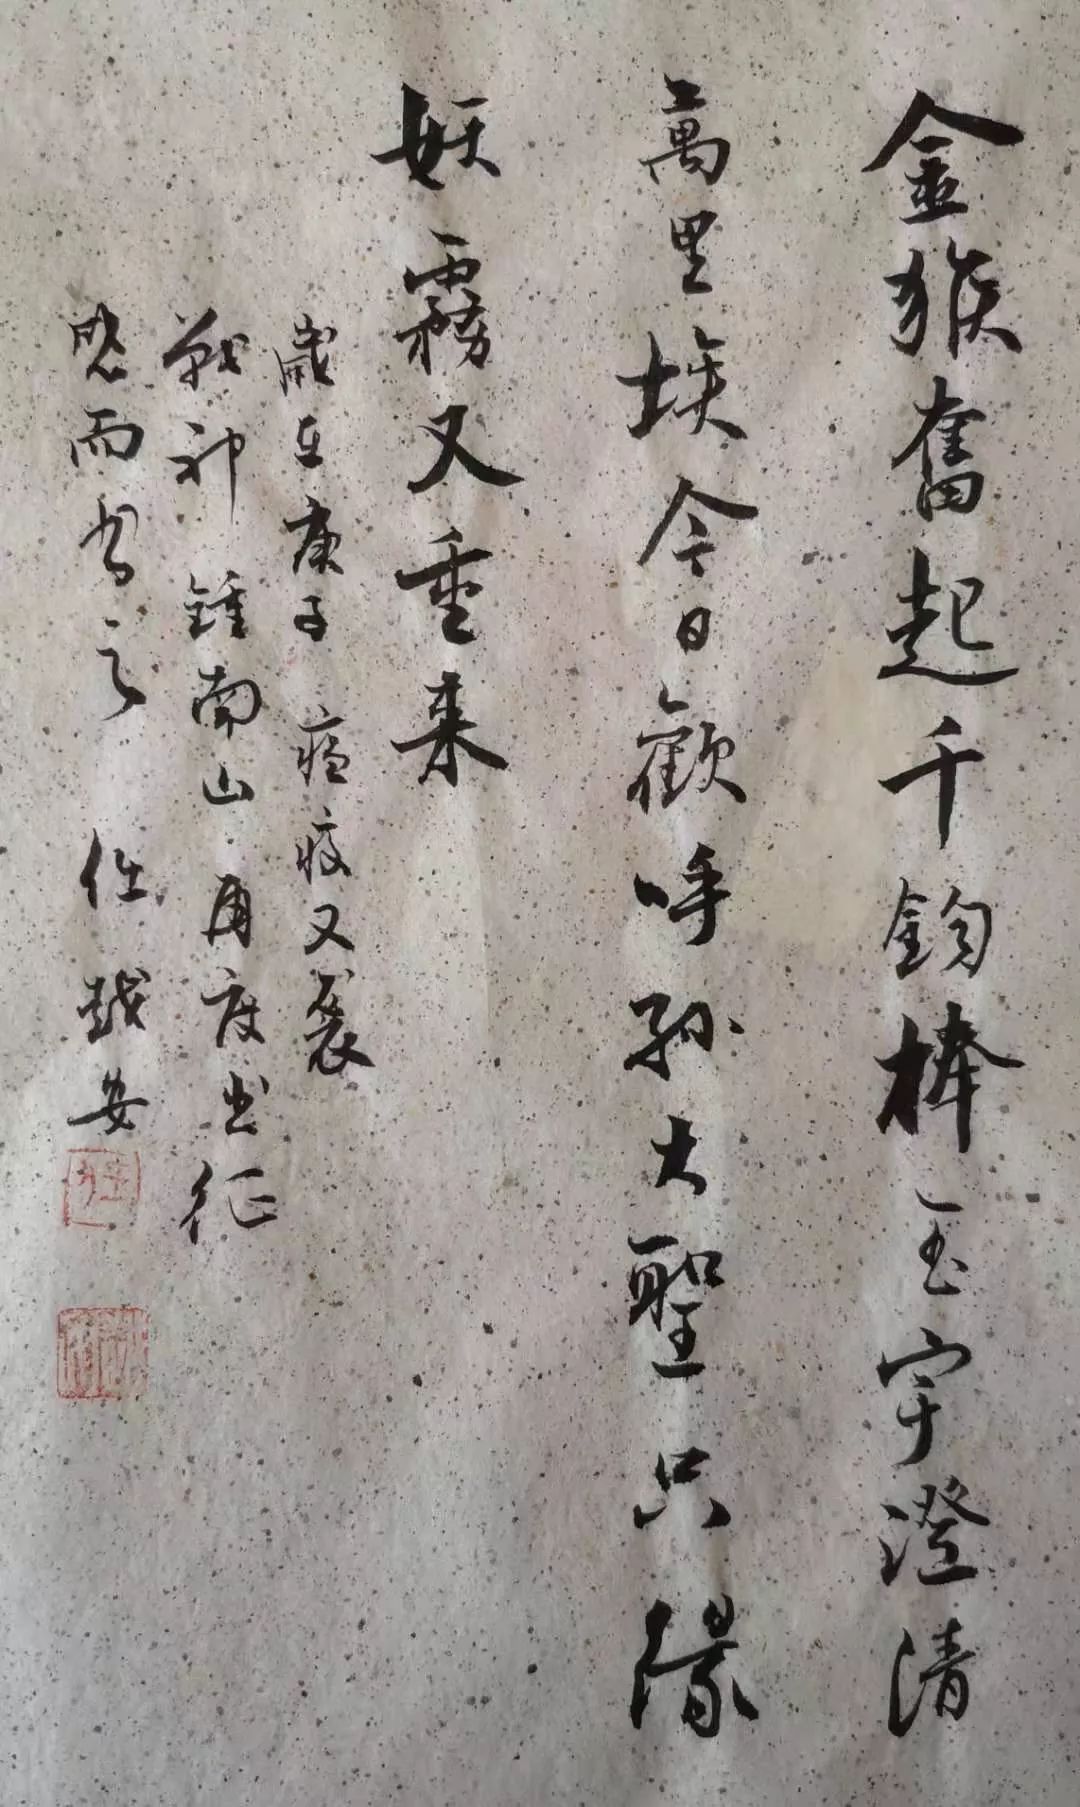 金猴奮起千鈞棒玉宇澄清
萬里埃今日歡呼孫大聖只緣
妖霧又重来
歲在庚子瘟疫又襲
戰神鍾南山再度出征
感而书之 任越安